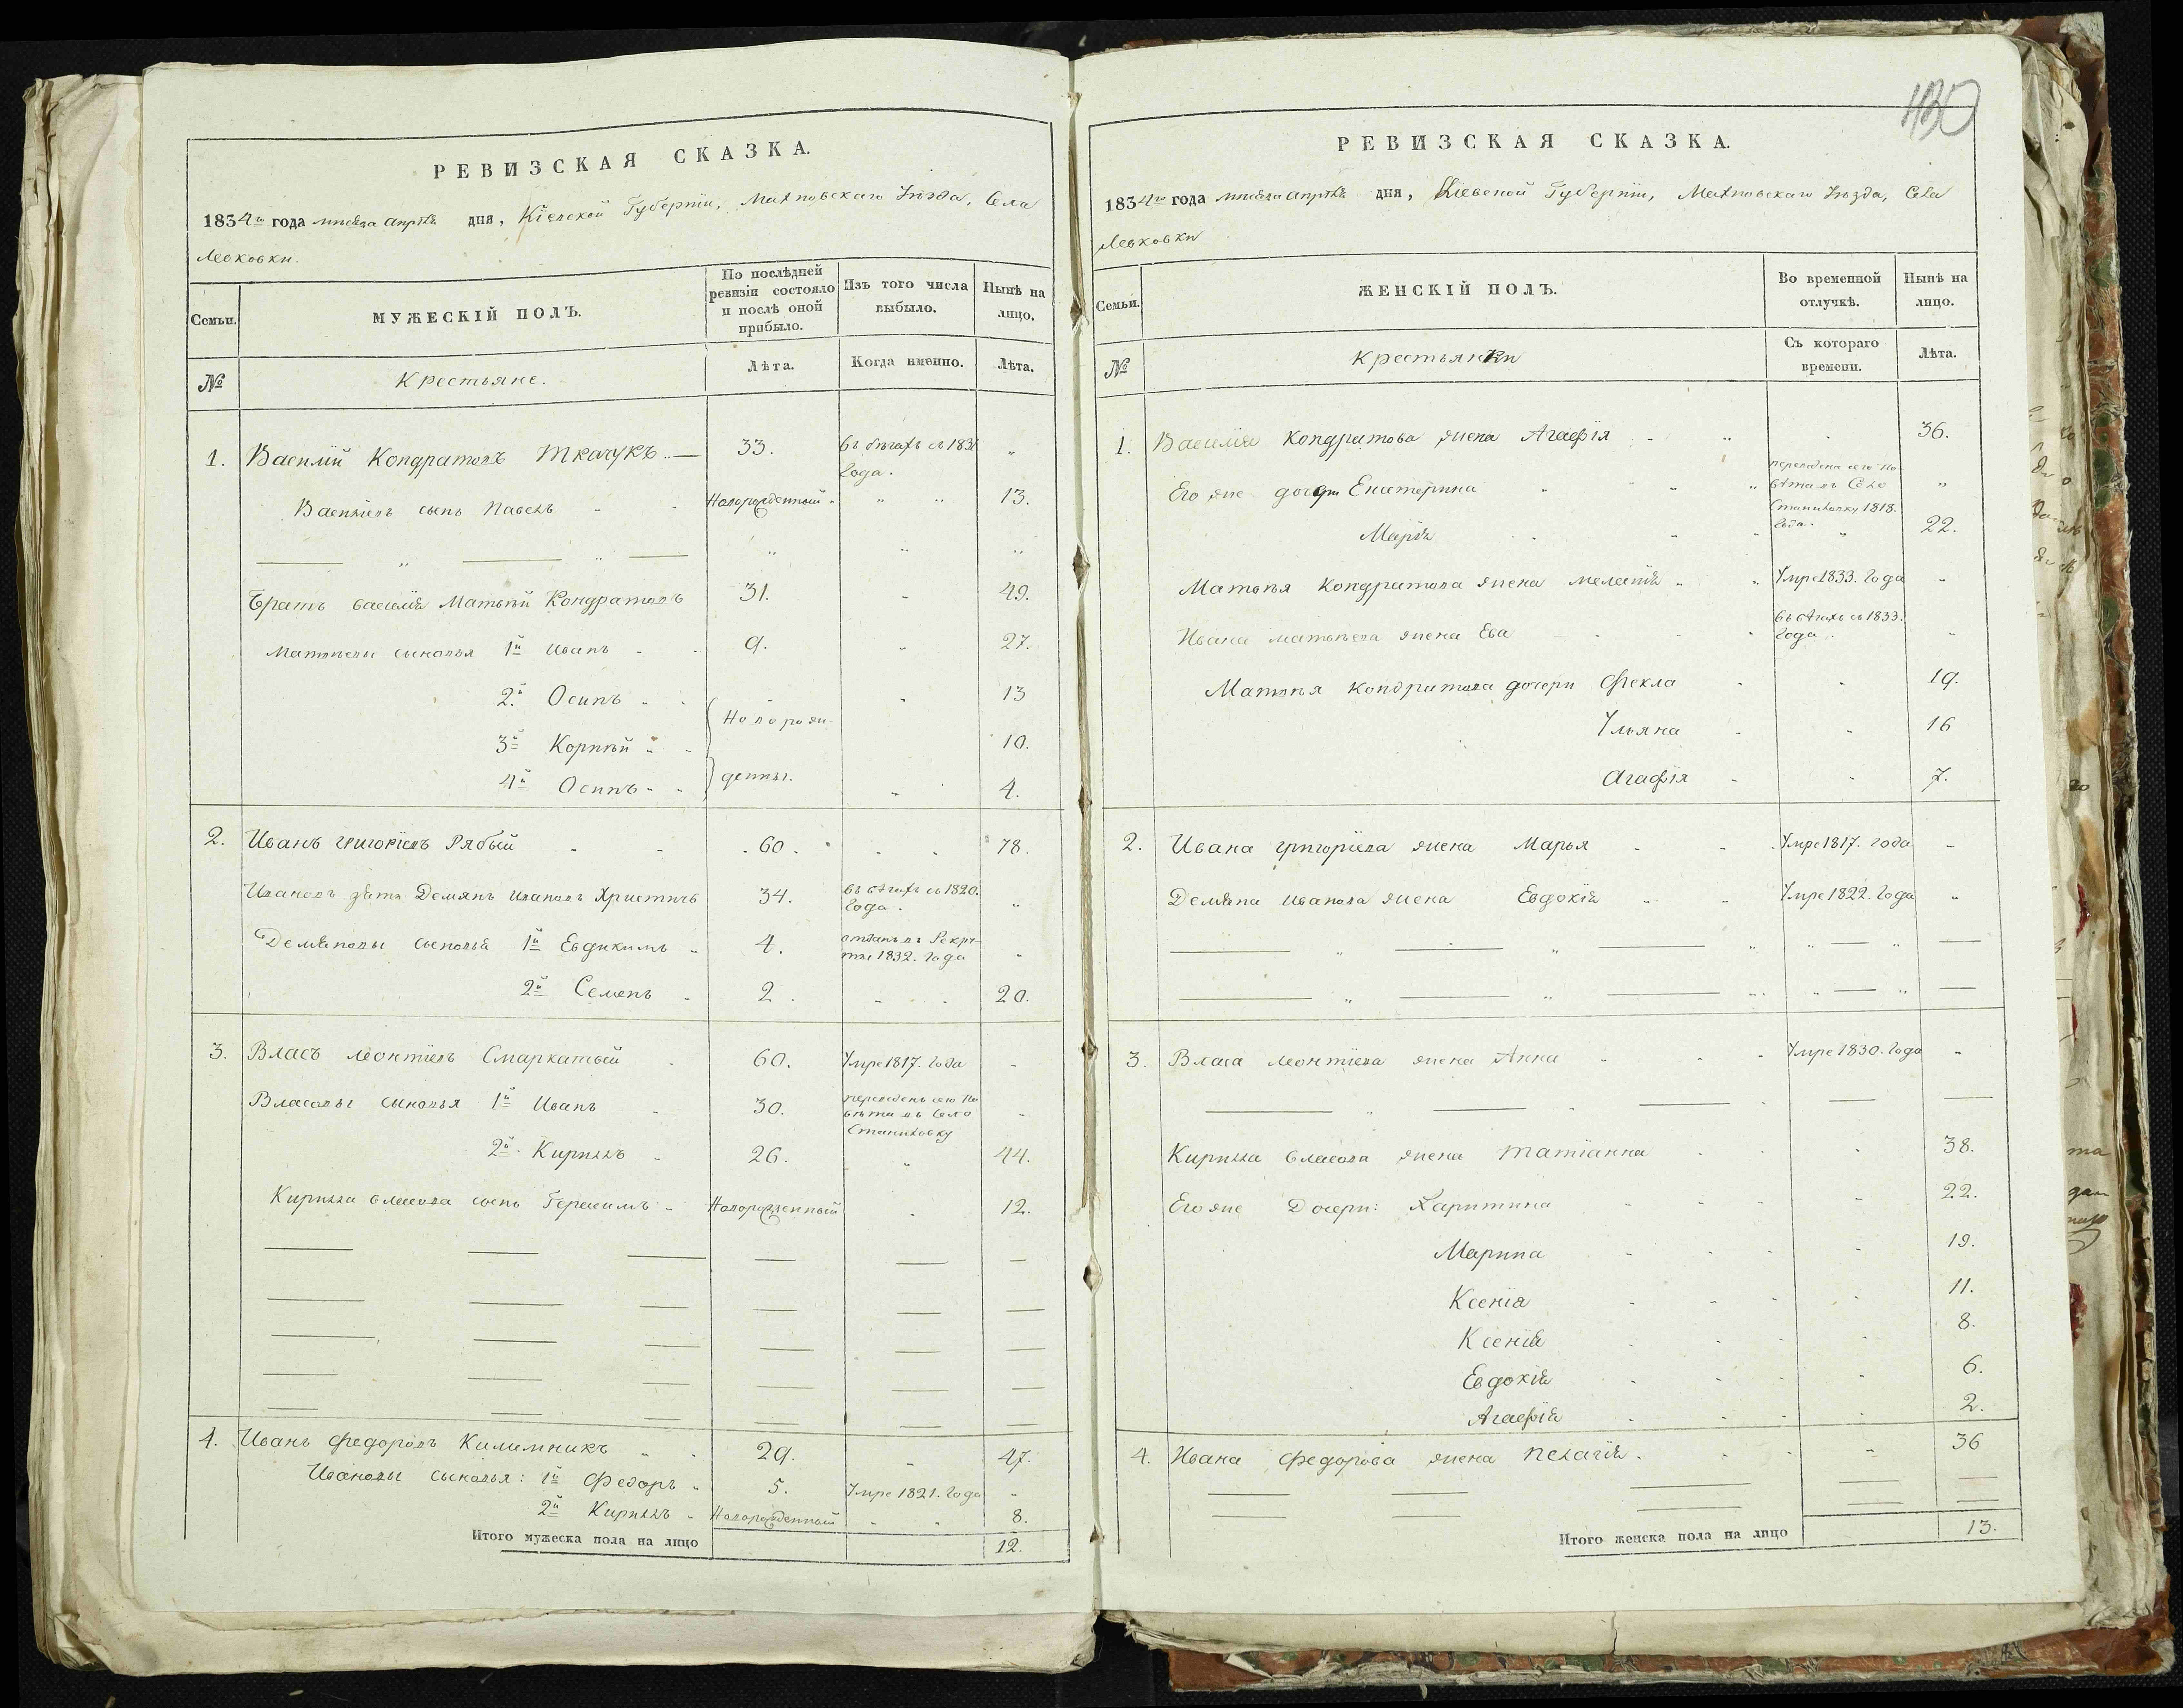 РЕВИЗСКАЯ СКАЗКА.
1834го года мисяца априля дня, Кіевской Губерніи, Махновскаго Уѣзда, Села
Левковки.
Семьи. МУЖЕСКІЙ ПОЛЪ. По послѣдней ревизіи состояло и послѣ оной прибыло. Изъ того числа выбыло. Нынѣ на лицо.
№ Крестьяне. Лѣта. Когда именно. Лѣта.
1. Василій Кондратовъ Ткачукъ.. — 33. въ бѣгахъ съ 1831 года. „
Василіевъ сынъ Павелъ Новорожденный „ „ 13.
Братъ василія Матвѣй Кондратовъ 31. 49.
Матвѣевы сыновья 1й Иванъ 9. 27.
2й Осипъ 13
3й Корнѣй { Новорож- 10.
4й Осипъ } денны. 4.
2. Иванъ григоріевъ Рябый 60. 78.
Ивановъ зять Демянъ ивановъ Христичъ 34. въ бѣгахъ съ 1820. года. „
Демяновы сыновья 1й Евдикимъ 4. отданъ въ Рекруты 1832. года „
2й Семенъ 2. 20.
3. Власъ леонтіевъ Смаркатый 60. Умре 1817. года
Власовы сыновья 1й Иванъ 30. переведенъ сего Повѣта въ село Станиловку
2й Кирилъ 26. 44.
Кирила власова сынъ Герасимъ Новорожденный 12.
4. Иванъ федоровъ Килимникъ 29. 47.
Ивановы сыновья: 1й Федоръ 5. Умре 1821. года „
2й Кирилъ Новорожденный „ „ 8.
Итого мужеска пола на лицо 12.
130
РЕВИЗСКАЯ СКАЗКА.
1834го года мисяца априля дня, Кіевской Губерніи, Махновскаго Уѣзда, Села
Левковки
Семьи. ЖЕНСКІЙ ПОЛЪ. Во временной отлучкѣ. Нынѣ на лицо.
№ Крестьянки Съ котораго времени. Лѣта.
1. Василія кондратова жена Агафія 36.
Его же дочери Екатерина переведена сего Повѣта въ Село Станиловку 1818. года. „
Марія 22.
Матвѣя Кондратова жена мелатія Умре 1833. года
Ивана матвѣева жена Ева въ бѣгахъ съ 1833. года.
Матвѣя кондратова дочери Фекла 19.
Ульяна 16
Агафія 7.
2. Ивана григоріева жена Марья Умре 1817. года
Демяна иванова жена Евдокія Умре 1822. года
3. Власа леонтіева жена Анна Умре 1830. года
Кирила власова жена татіанна 38.
Его же Дочери: Харитина 22.
Марина 19.
Ксенія 11.
Ксенія 8.
Евдокія 6.
Агафія 2.
4. Ивана федорова жена пелагія 36
Итого женска пола на лицо 13.